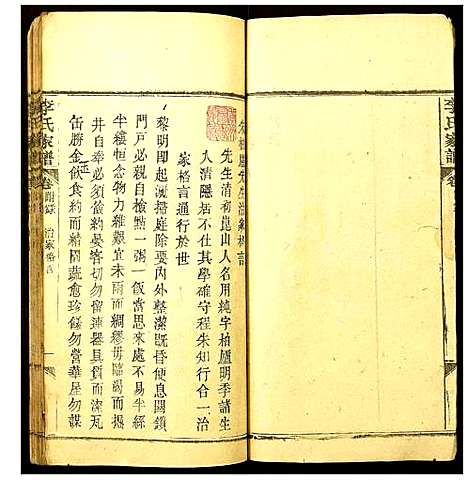 李氏家譜
朱柏廬先生治家格言
先生清初崑山人名用純字柏廬明季諸生
入清隱居不仕其學確守程朱知行合一治
家格言通行於世
黎明即起灑掃庭除要內外整潔既昏便息關鎖
門戶必親自檢點一粥一飯當思來處不易半絲
半縷恒念物力維艱宜未雨而綢繆毋臨渴而掘
井自奉必須儉約宴客切勿留連器具質而潔瓦
缶勝金玉飲食約而精園蔬愈珍饈勿營華屋勿謀
李氏家譜
卷 附錄 治家格言 一